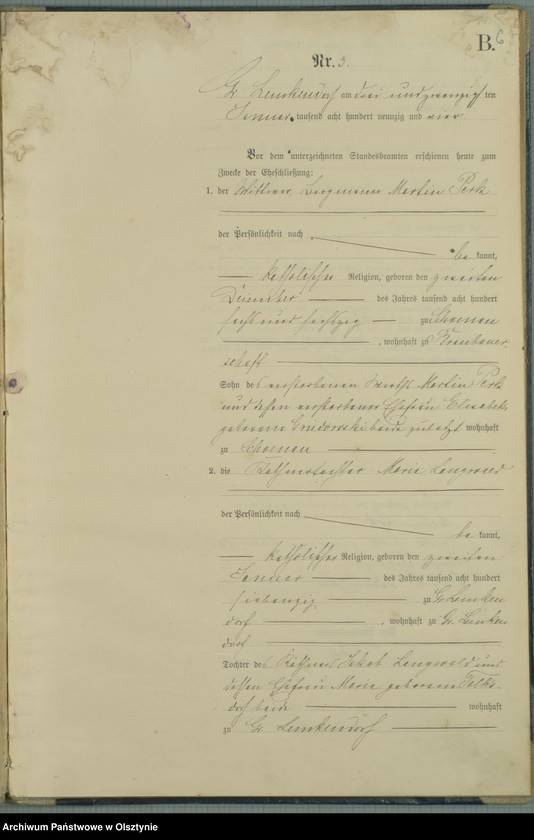 B. 6
Nr. 3.
Gr. Lemkendorf am drei und zwanzig ten
Januar tausend acht hundert neunzig und vier
Vor dem unterzeichneten Standesbeamten erschienen heute zum
Zwecke der Eheschließung:
1. der Wittwer, Bergmann Martin
der Persönlichkeit nach
be kannt,
katholischer Religion, geboren den zweiten
Dezember des Jahres tausend acht hundert
sechs und sechszig zu Schoenau
, wohnhaft zu
schaft
Sohn des verstorbenen Martin
und dessen verstorbener Ehefrau Elisabeth
geborene beide zuletzt wohnhaft
zu Schoenau
2. die Käthnertochter Marie Langwald
der Persönlichkeit nach
be kannt,
katholischer Religion, geboren den zweiten
Januar des Jahres tausend acht hundert
siebenzig zu Gr. Lemken
dorf , wohnhaft zu Gr. Lemken
dorf
Tochter des Käthner Jakob Langwald und
dessen Ehefrau Marie geborene
dorf beide wohnhaft
zu Gr. Lemkendorf
Archiwum Państwowe w Olsztynie